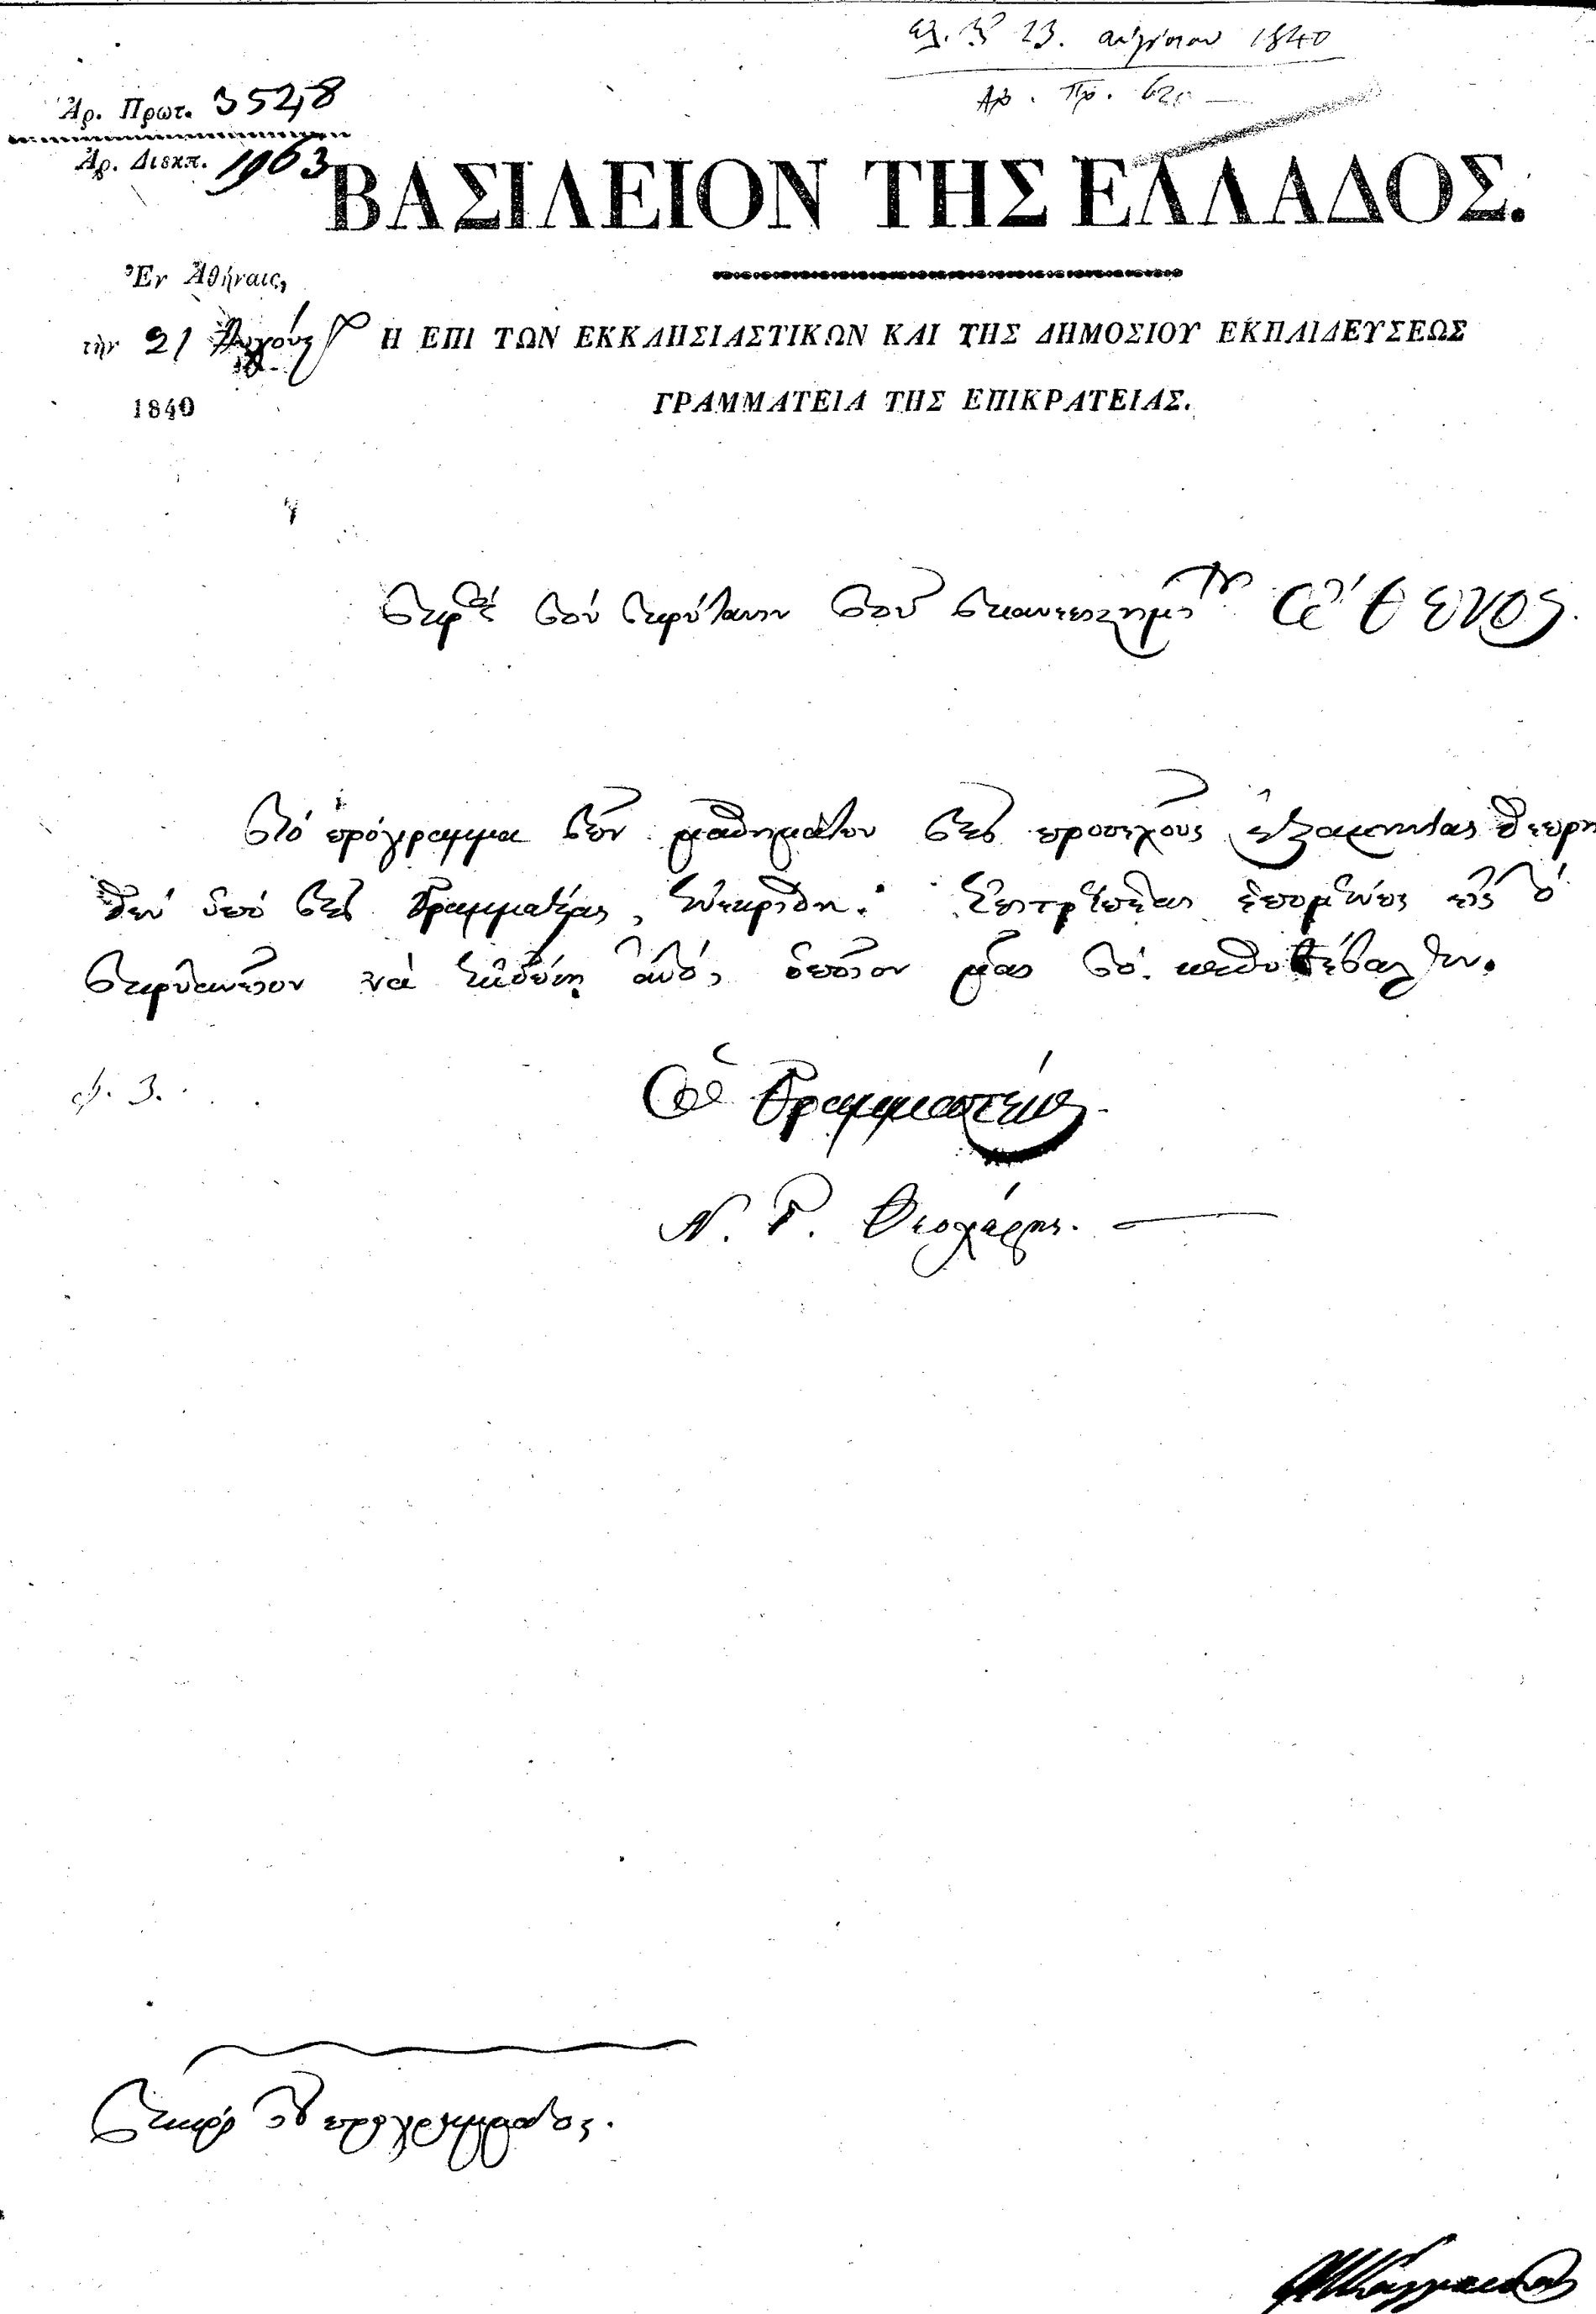 ἐλ. τῇ 23. αὐγούστου 1840
Ἀρ. Πρ.
Ἀρ. Πρωτ. 3528
Ἀρ. Διεκπ. 1963
ΒΑΣΙΛΕΙΟΝ ΤΗΣ ΕΛΛΑΔΟΣ.
Ἐν Ἀθήναις,
τὴν 21 Αὐγούστ
Η ΕΠΙ ΤΩΝ ΕΚΚΛΗΣΙΑΣΤΙΚΩΝ ΚΑΙ ΤΗΣ ΔΗΜΟΣΙΟΥ ΕΚΠΑΙΔΕΥΣΕΩΣ
1840
ΓΡΑΜΜΑΤΕΙΑ ΤΗΣ ΕΠΙΚΡΑΤΕΙΑΣ.
Πρὸς τὸν Πρύτανιν τοῦ Πανεπιστημίου Ὄθωνος.
Τὸ πρόγραμμα τῶν μαθημάτων τῆς προσεχοῦς ἑξαμηνίας θεωρη
θὲν ὑπὸ τῆς Γραμματείας, ἐνεκρίθη. Ἐπιτρέπεται ἑπομένως εἰς τὸ
Πρυτανεῖον νὰ ἐκδώσῃ αὐτό, ὁποῖον μᾶς τὸ καθυπέβαλεν.
Ὁ Γραμματεύς
Ν. Γ. Θεοχάρης.
Περὶ τοῦ προγράμματος.